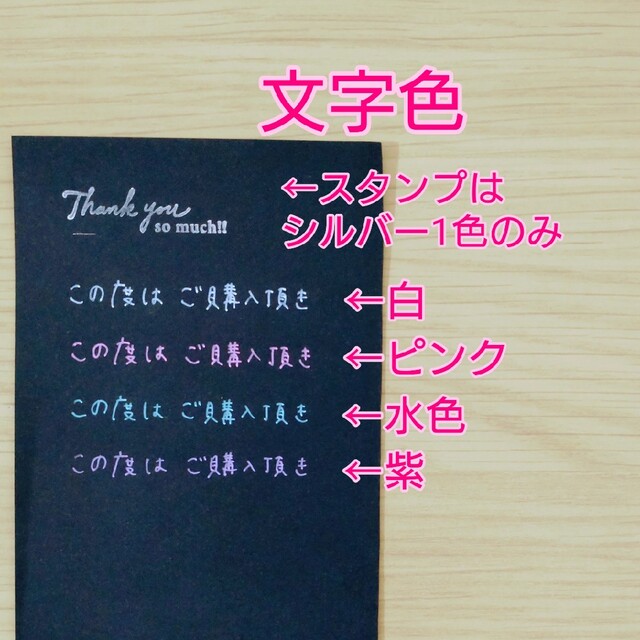 文字色
Thank you
so much!!
←スタンプは
シルバー1色のみ
この度は ご購入頂き ←白
この度は ご購入頂き ←ピンク
この度は ご購入頂き ←水色
この度は ご購入頂き ←紫